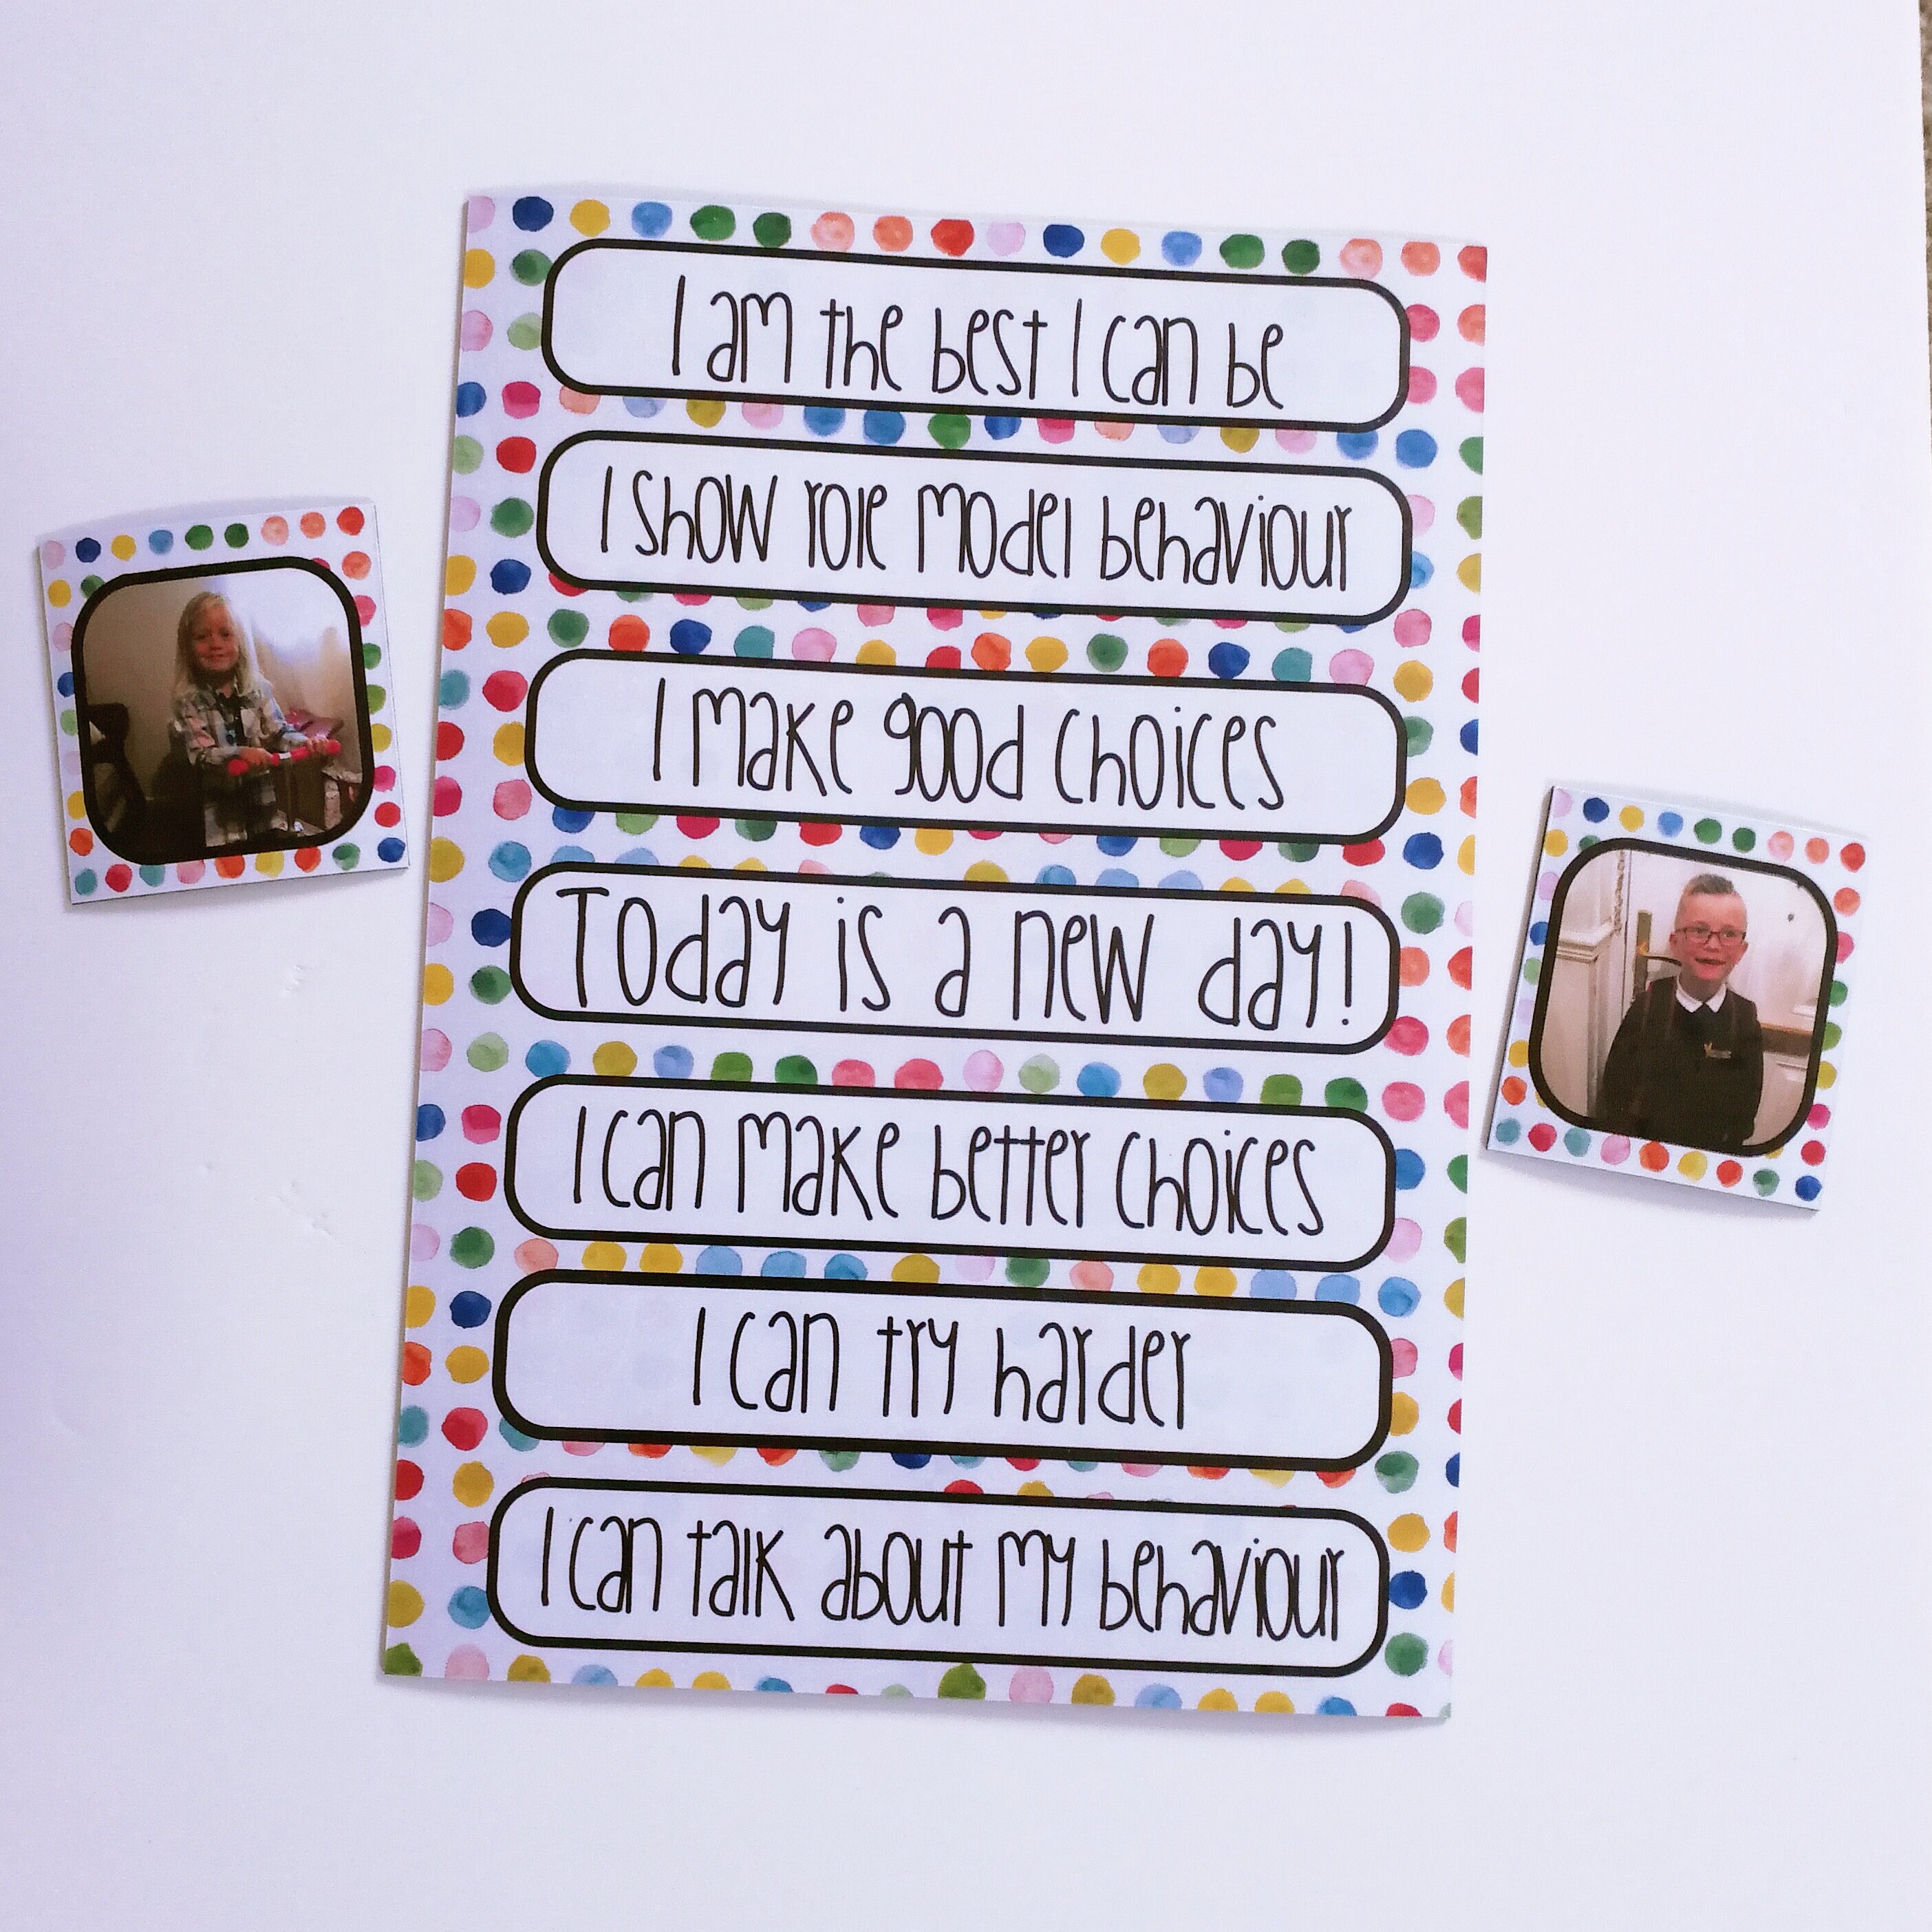 I am the best I can be
I show role model behaviour
I make good choices
Today is a new day!
I can make better choices
I can try harder
I can talk about my behaviour